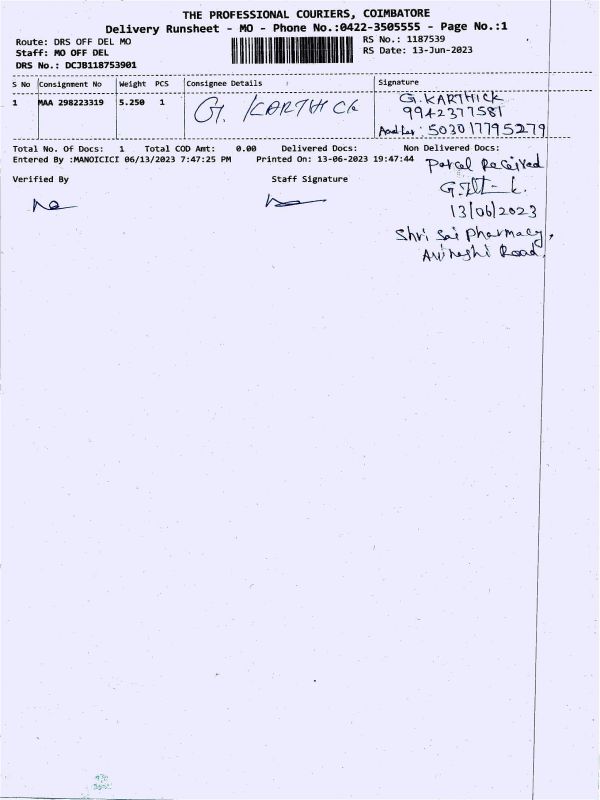 THE PROFESSIONAL COURIERS, COIMBATORE
Delivery Runsheet - MO - Phone No.:0422-3505555 - Page No.:1
Route: DRS OFF DEL MO
RS No.: 1187539
Staff: MO OFF DEL
RS Date: 13-Jun-2023
DRS No.: DCJB118753901
S No Consignment No Weight PCS Consignee Details Signature
1 MAA 298223319 5.250 1 G. KARTHICK G. KARTHICK
9942377581
Aadhar: 5030 1779 5279
Total No. Of Docs: 1 Total COD Amt: 0.00 Delivered Docs: Non Delivered Docs:
Entered By :MANOICICI 06/13/2023 7:47:25 PM Printed On: 13-06-2023 19:47:44
Parcel Received
Verified By Staff Signature
13/06/2023
Shri Sai Pharmacy,
Avinashi Road.